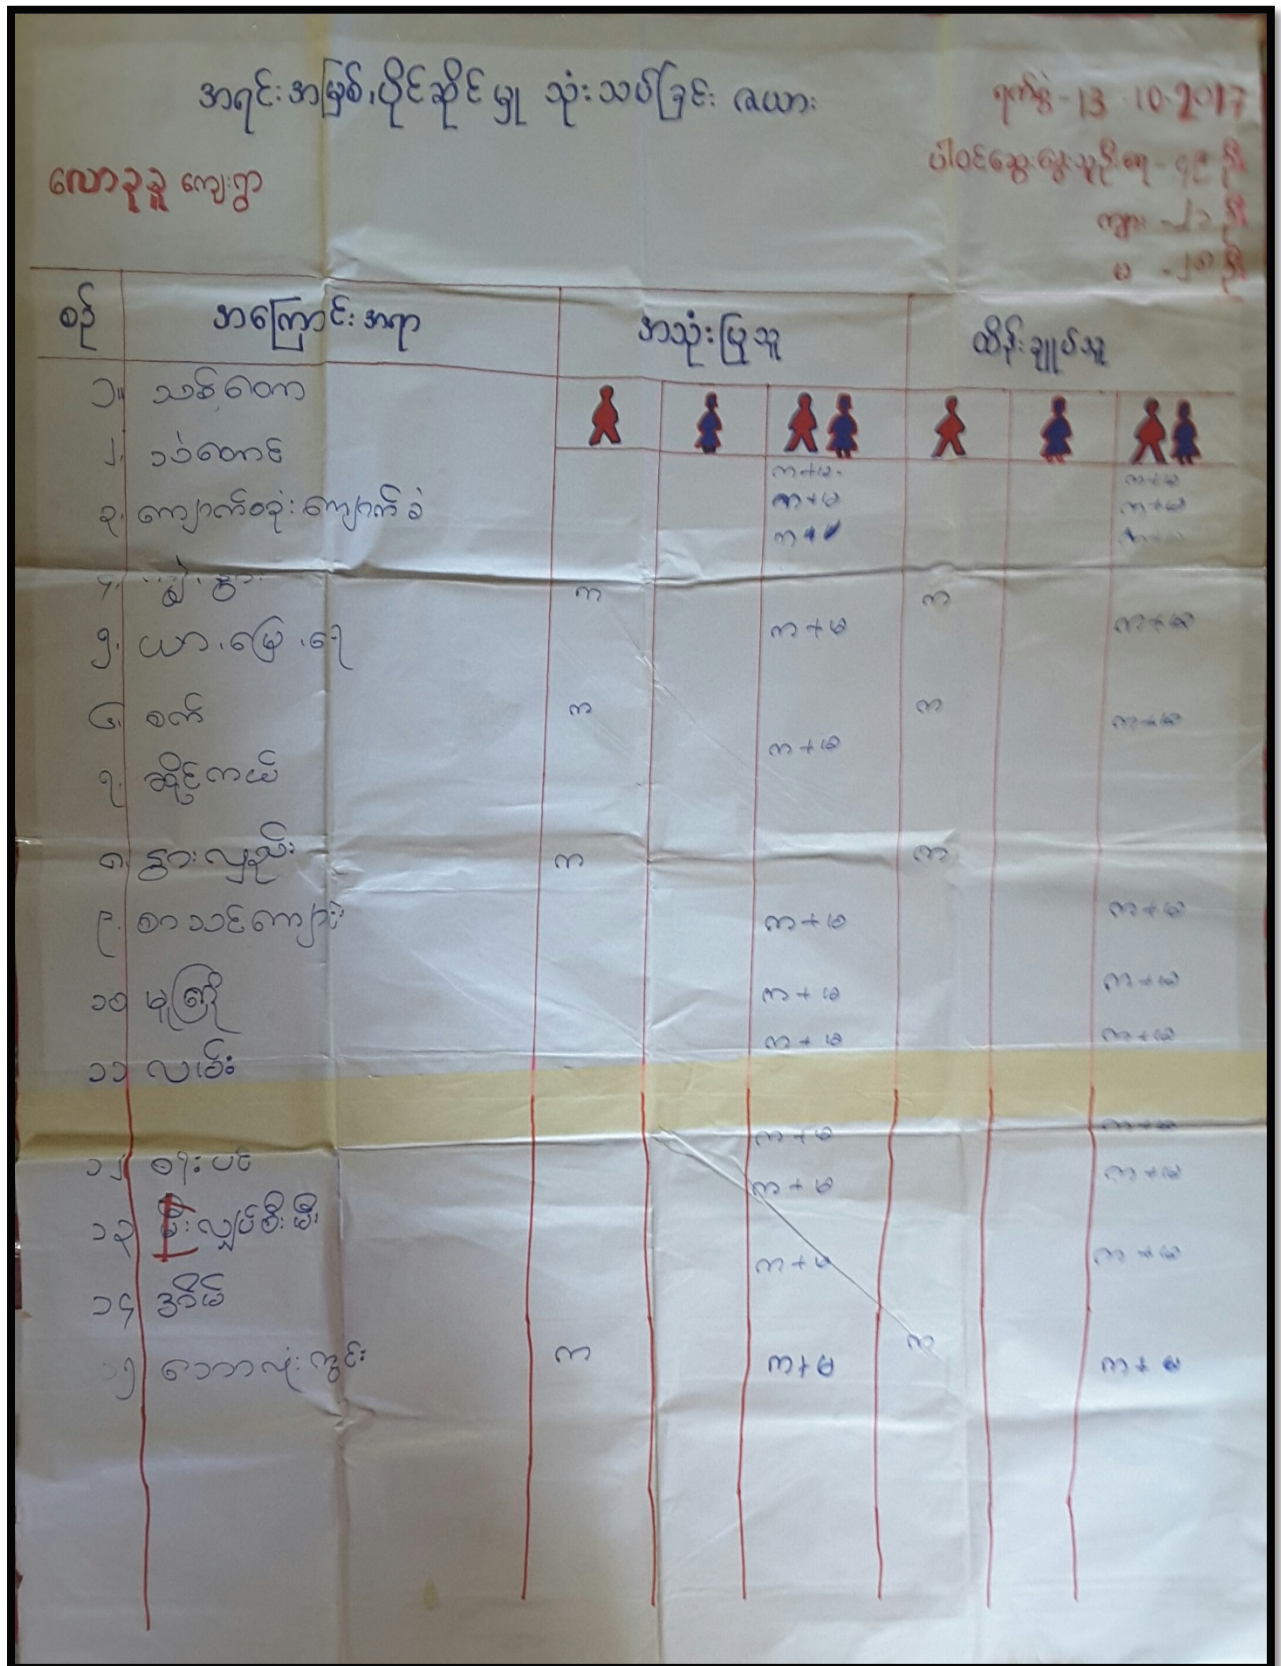 အရင်းအမြစ်၊ပိုင်ဆိုင်မှု သုံးသပ်ခြင်း ဇယား
ရက်စွဲ - 13 10.2017
လောခုခူ ကျေးရွာ
ပါဝင်ဆွေးနွေးသူဦးရေ - ၄၉ ဦး
ကျား - ၂၁ ဦး
မ - ၂၈ ဦး
စဉ် အကြောင်းအရာ အသုံးပြုသူ ထိန်းချုပ်သူ
၁။ သစ်တော
၂. ဝါးတောင်
က+မ က+မ
၃. ကျောက်စခုံးကျောက်ခဲ
က+မ က+မ
က+မ
၄. ကျွဲ၊နွား က က
၅. ယာ၊မြေ၊ရေ က+မ က+မ
၆. စက် က က
က+မ က+မ
၇. ဆိုင်ကယ်
၈. နွားလှည်း က က
၉. စာသင်ကျောင်း က+မ က+မ
၁၀ မူကြို က+မ က+မ
၁၁ လမ်း က+မ က+မ
၁၂ စပင် က+မ က+မ
၁၃ မီးလျှပ်စီးမီး က+မ က+မ
၁၄ အိမ် က+မ က+မ
၁၅ ဘောလုံးကွင်း က က+မ က က+မ